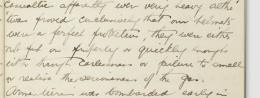 casualties actually were very heavy altho'
it was proved conclusively that our helmets
were a perfect protection, they were either
not put on properly or quickly enough
either through carelessness or failure to smell
or realise the seriousness of the gas.
was bombarded early in